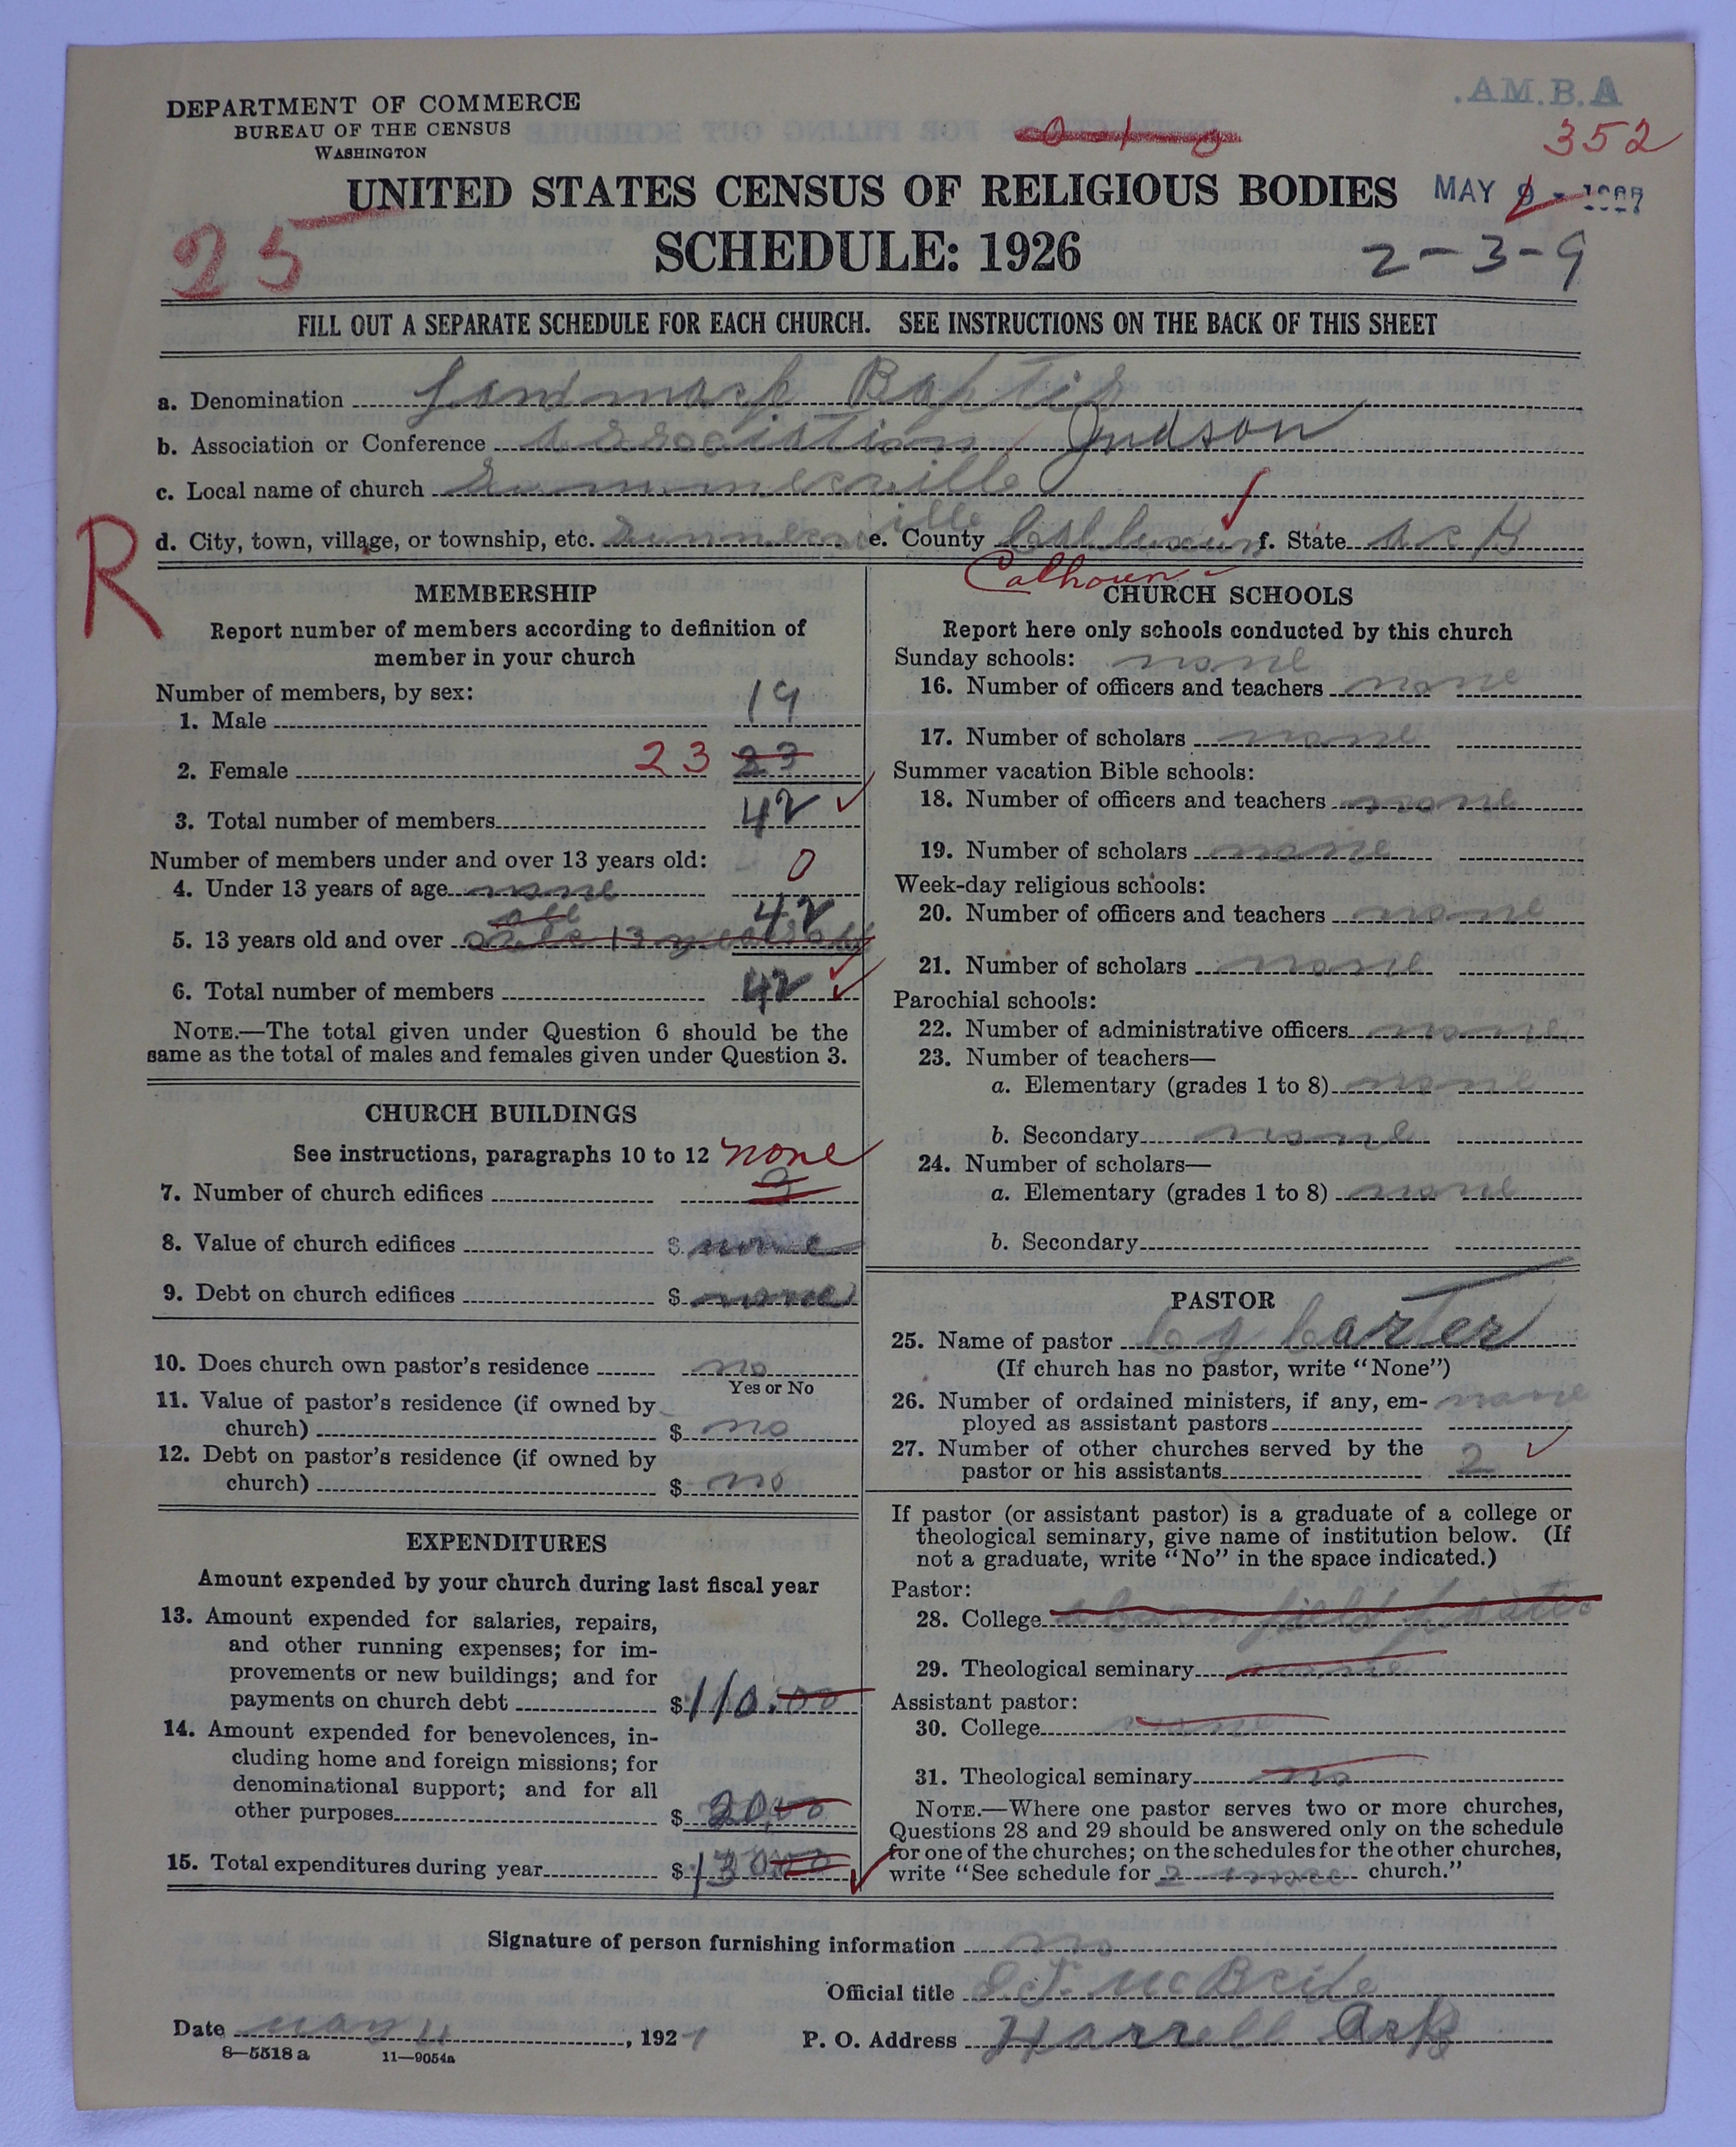 A.B.M.A.
DEPARTMENT OF COMMERCE
BUREAU OF THE CENSUS
WASHINGTON
352
UNITED STATES CENSUS OF RELIGIOUS BODIES
MAY 9 - 1927
25
SCHEDULE: 1926
2-3-9
FILL OUT A SEPARATE SCHEDULE FOR EACH CHURCH. SEE INSTRUCTIONS ON THE BACK OF THIS SHEET
a. Denomination Landmark Baptis
b. Association or Conference Association Judson
c. Local name of church
d. City, town, village, or township, etc. e. County f. State Ark
R
Calhoun
MEMBERSHIP
Report number of members according to definition of
member in your church
Number of members, by sex:
1. Male 19
2. Female 23 23
3. Total number of members 42
Number of members under and over 13 years old:
4. Under 13 years of age none 0
5. 13 years old and over all 13 42
6. Total number of members 42
NOTE.—The total given under Question 6 should be the
same as the total of males and females given under Question 3.
CHURCH BUILDINGS
See instructions, paragraphs 10 to 12 none
7. Number of church edifices
8. Value of church edifices $ none
9. Debt on church edifices $ none
10. Does church own pastor's residence no
Yes or No
11. Value of pastor's residence (if owned by
church) $ no
12. Debt on pastor's residence (if owned by
church) $ no
EXPENDITURES
Amount expended by your church during last fiscal year
13. Amount expended for salaries, repairs,
and other running expenses; for im-
provements or new buildings; and for
payments on church debt $ 110.00
14. Amount expended for benevolences, in-
cluding home and foreign missions; for
denominational support; and for all
other purposes $ 20.00
15. Total expenditures during year $ 130.00
CHURCH SCHOOLS
Report here only schools conducted by this church
Sunday schools: none
16. Number of officers and teachers none
17. Number of scholars none
Summer vacation Bible schools:
18. Number of officers and teachers none
19. Number of scholars none
Week-day religious schools:
20. Number of officers and teachers none
21. Number of scholars none
Parochial schools:
22. Number of administrative officers none
23. Number of teachers—
a. Elementary (grades 1 to 8) none
b. Secondary none
24. Number of scholars—
a. Elementary (grades 1 to 8) none
b. Secondary
PASTOR
25. Name of pastor C g Carter
(If church has no pastor, write "None")
26. Number of ordained ministers, if any, em-
ployed as assistant pastors none
27. Number of other churches served by the
pastor or his assistants 2
If pastor (or assistant pastor) is a graduate of a college or
theological seminary, give name of institution below. (If
not a graduate, write "No" in the space indicated.)
Pastor:
28. College
29. Theological seminary
Assistant pastor:
30. College none
31. Theological seminary no
NOTE.—Where one pastor serves two or more churches,
Questions 28 and 29 should be answered only on the schedule
for one of the churches; on the schedules for the other churches,
write "See schedule for church."
Signature of person furnishing information no
Official title McBride
Date May 4, 1927 P. O. Address Harrell Ark
8—5518 a 11—9054a